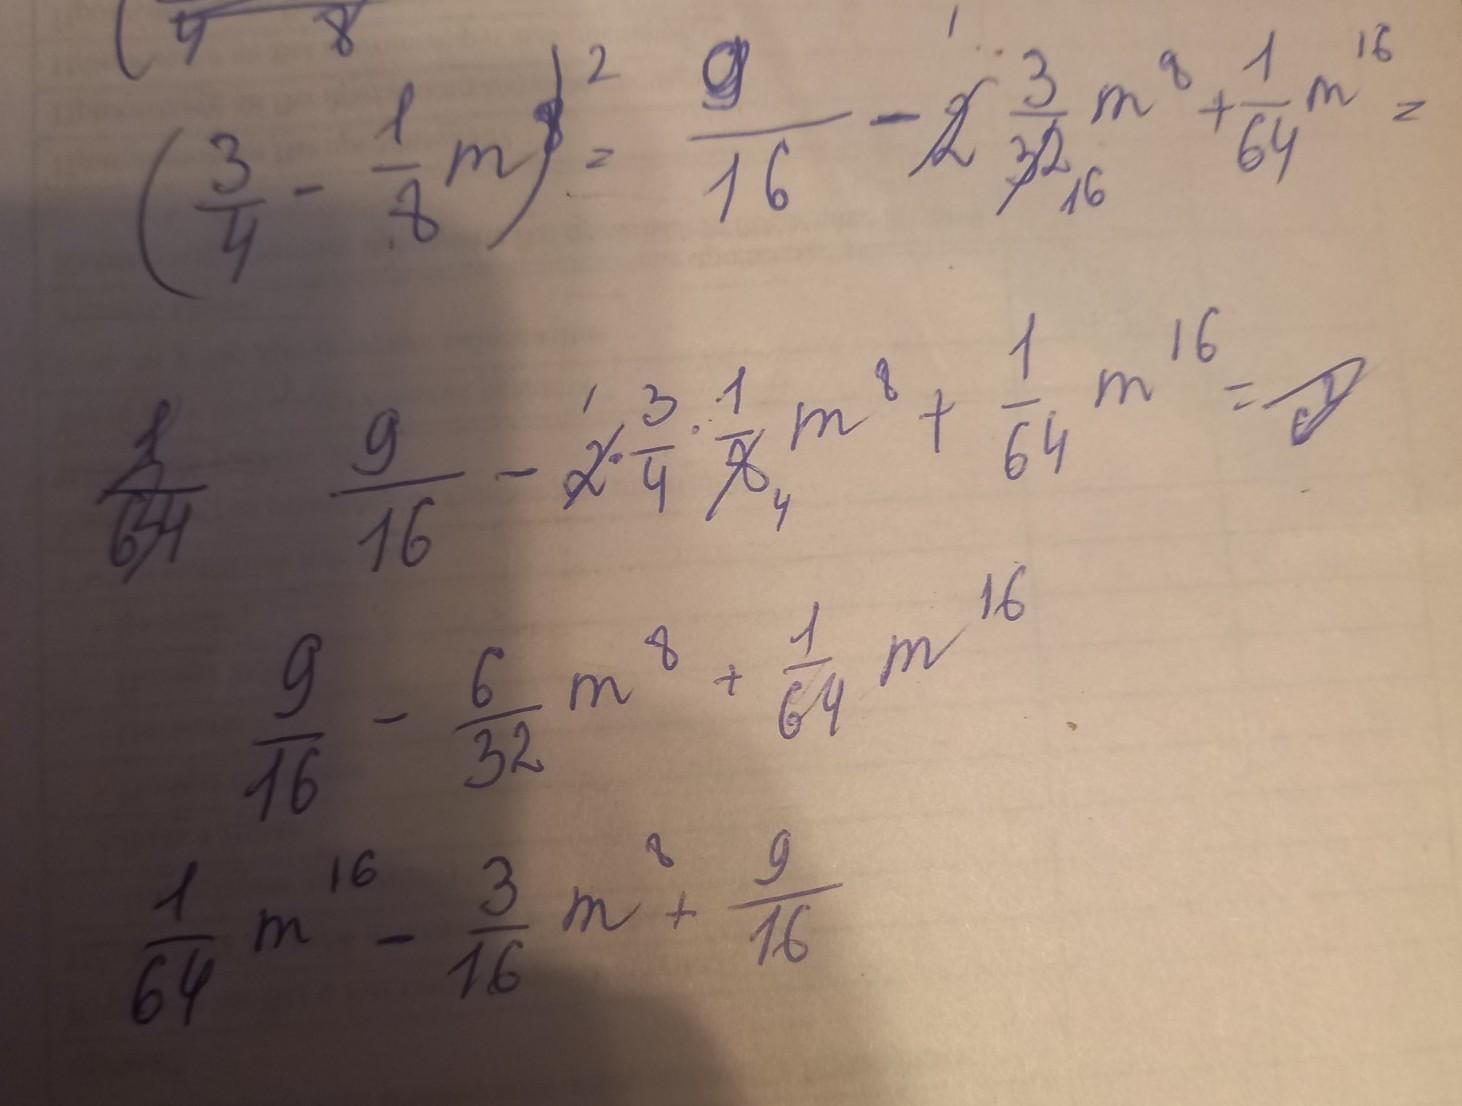 ( 4 8
(3/4 - 1/8 m⁸)² = 9/16 - 2 1 3/32 16 m⁸ + 1/64 m¹⁶ =
1/64 9/16 - 2 1 · 3/4 · 1/8 4 m⁸ + 1/64 m¹⁶ =
9/16 - 6/32 m⁸ + 1/64 m¹⁶
1/64 m¹⁶ - 3/16 m⁸ + 9/16